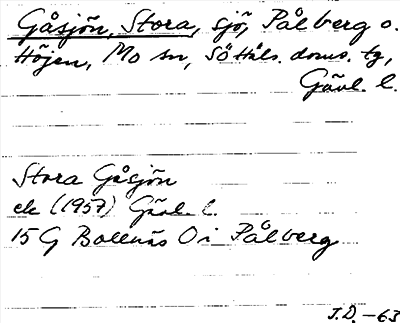 Gåsjön, Stora, sjö, Pålberg o.
Höjen, Mo sn, Sö Häls. doms. tg,
Gävl. l.
Stora Gåsjön
ek (1957) Gävl. l.
15 G Bollnäs O i Pålberg
J.D. -63